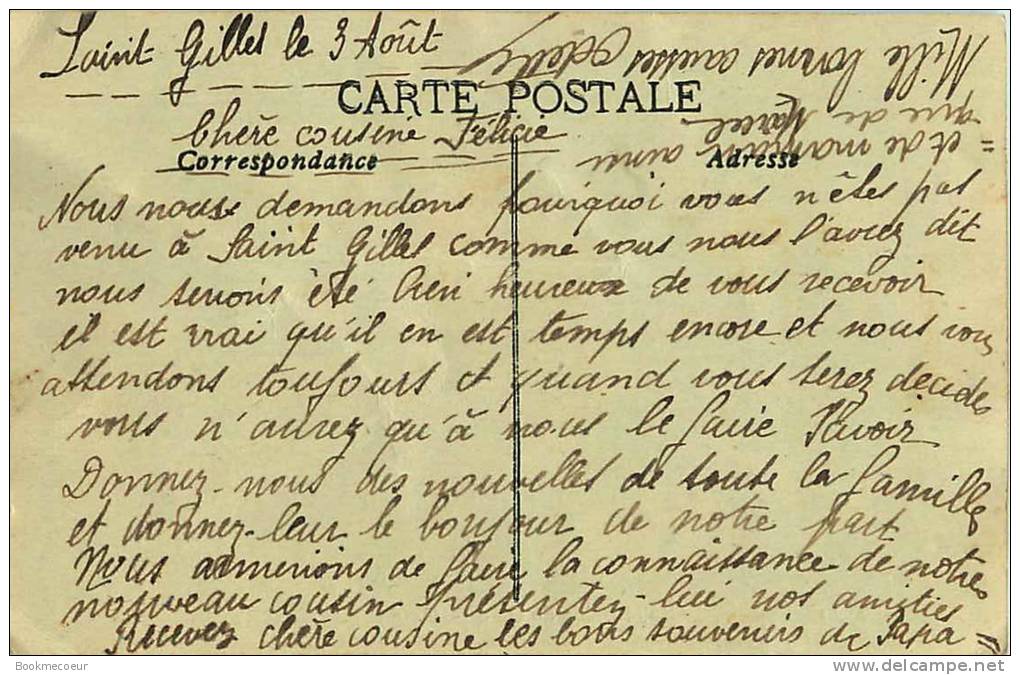 Saint Gilles le 3 Août
CARTE POSTALE
Chère cousine Félicie
Correspondance
Adresse
Nous nous demandons pourquoi vous n'êtes pas
venu à Saint Gilles comme vous nous l'aviez dit
nous serions été bien heureux de vous recevoir
il est vrai qu'il en est temps encore et nous vous
attendons toujours et quand vous serez décidés
vous n'aurez qu'à nous le faire savoir
Donnez-nous des nouvelles de toute la famille
et donnez-leur le bonjour de notre part
Nous aimerions de faire la connaissance de notre
nouveau cousin présentez-lui nos amitiés
Recevez chère cousine les bons souvenirs de Papa =
= et de maman ainsi
que de Marcel
Mille bonnes caresses Odette
Bookmecoeur
http://www.delcampe.net